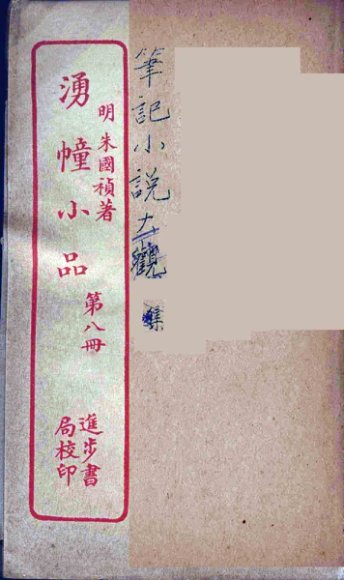 筆記小說大觀
明 朱國禎著
湧幢小品
第八冊
進步書
局校印